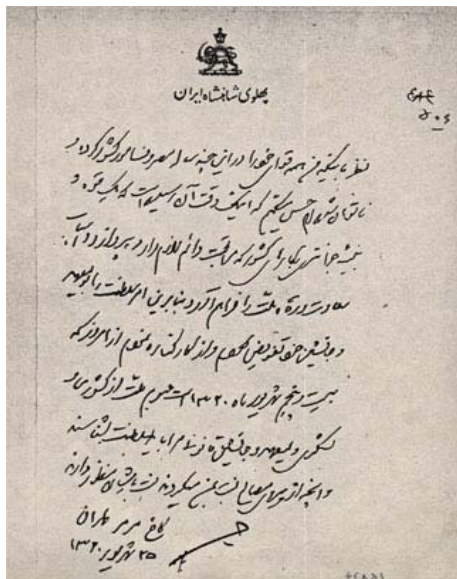 پهلوی شاهنشاه ایران
نظر باینکه من همه قوای خود را در این چند ساله مصروف امور کشور کرده و
ناتوان شده‌ام حس میکنم که اینک وقت آن رسیده است که یک قوه و
بنیه جوانتری بکارهای کشور که مراقبت دائم لازم دارد بپردازد و اسباب
سعادت و رفاه ملت را فراهم آورد بنابراین امور سلطنت را بولیعهد
و جانشین خود تفویض نمودم و از کار کناره نمودم از امروز که
بیست و پنج شهریور ماه ۱۳۲۰ است عموم ملت از کشوری و
لشکری ولیعهد و جانشین قانونی مرا باید بسلطنت بشناسند
و آنچه از پیروی مصالح کشور نسبت بمن میکردند نسبت بایشان منظور دارند
کاخ مرمر طهران
۲۵ شهریور ۱۳۲۰